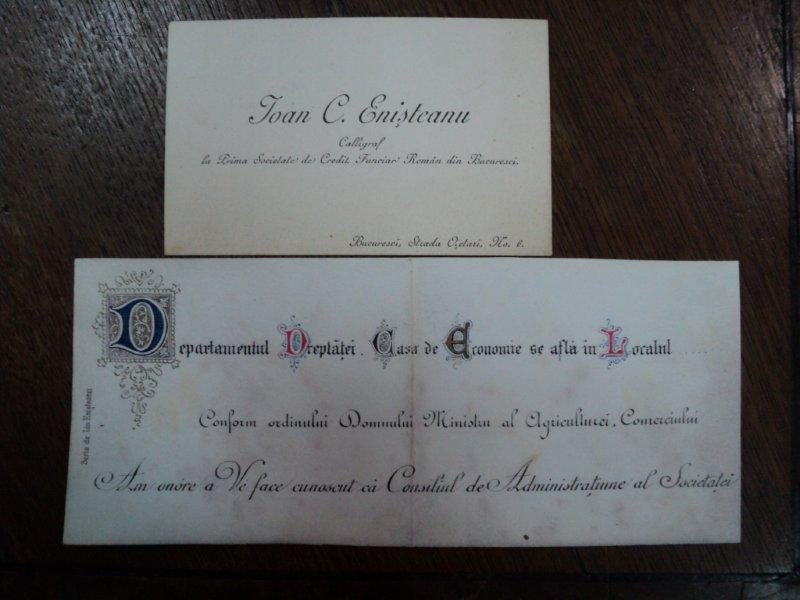 Ioan C. Enișteanu
Calligraf
la Prima Societate de Credit Funciar Român din Bucuresci.
Bucuresci, Strada Oțetari, No. 6.
Departamentul Dreptăței. Casa de Economie se află în Localul .....
Conform ordinului Domnului Ministru al Agriculturei, Comerciului
Am onóre a Vĕ face cunoscut că Consiliul de Administrațiune al Societăței
Scris de Ión Enișteanu